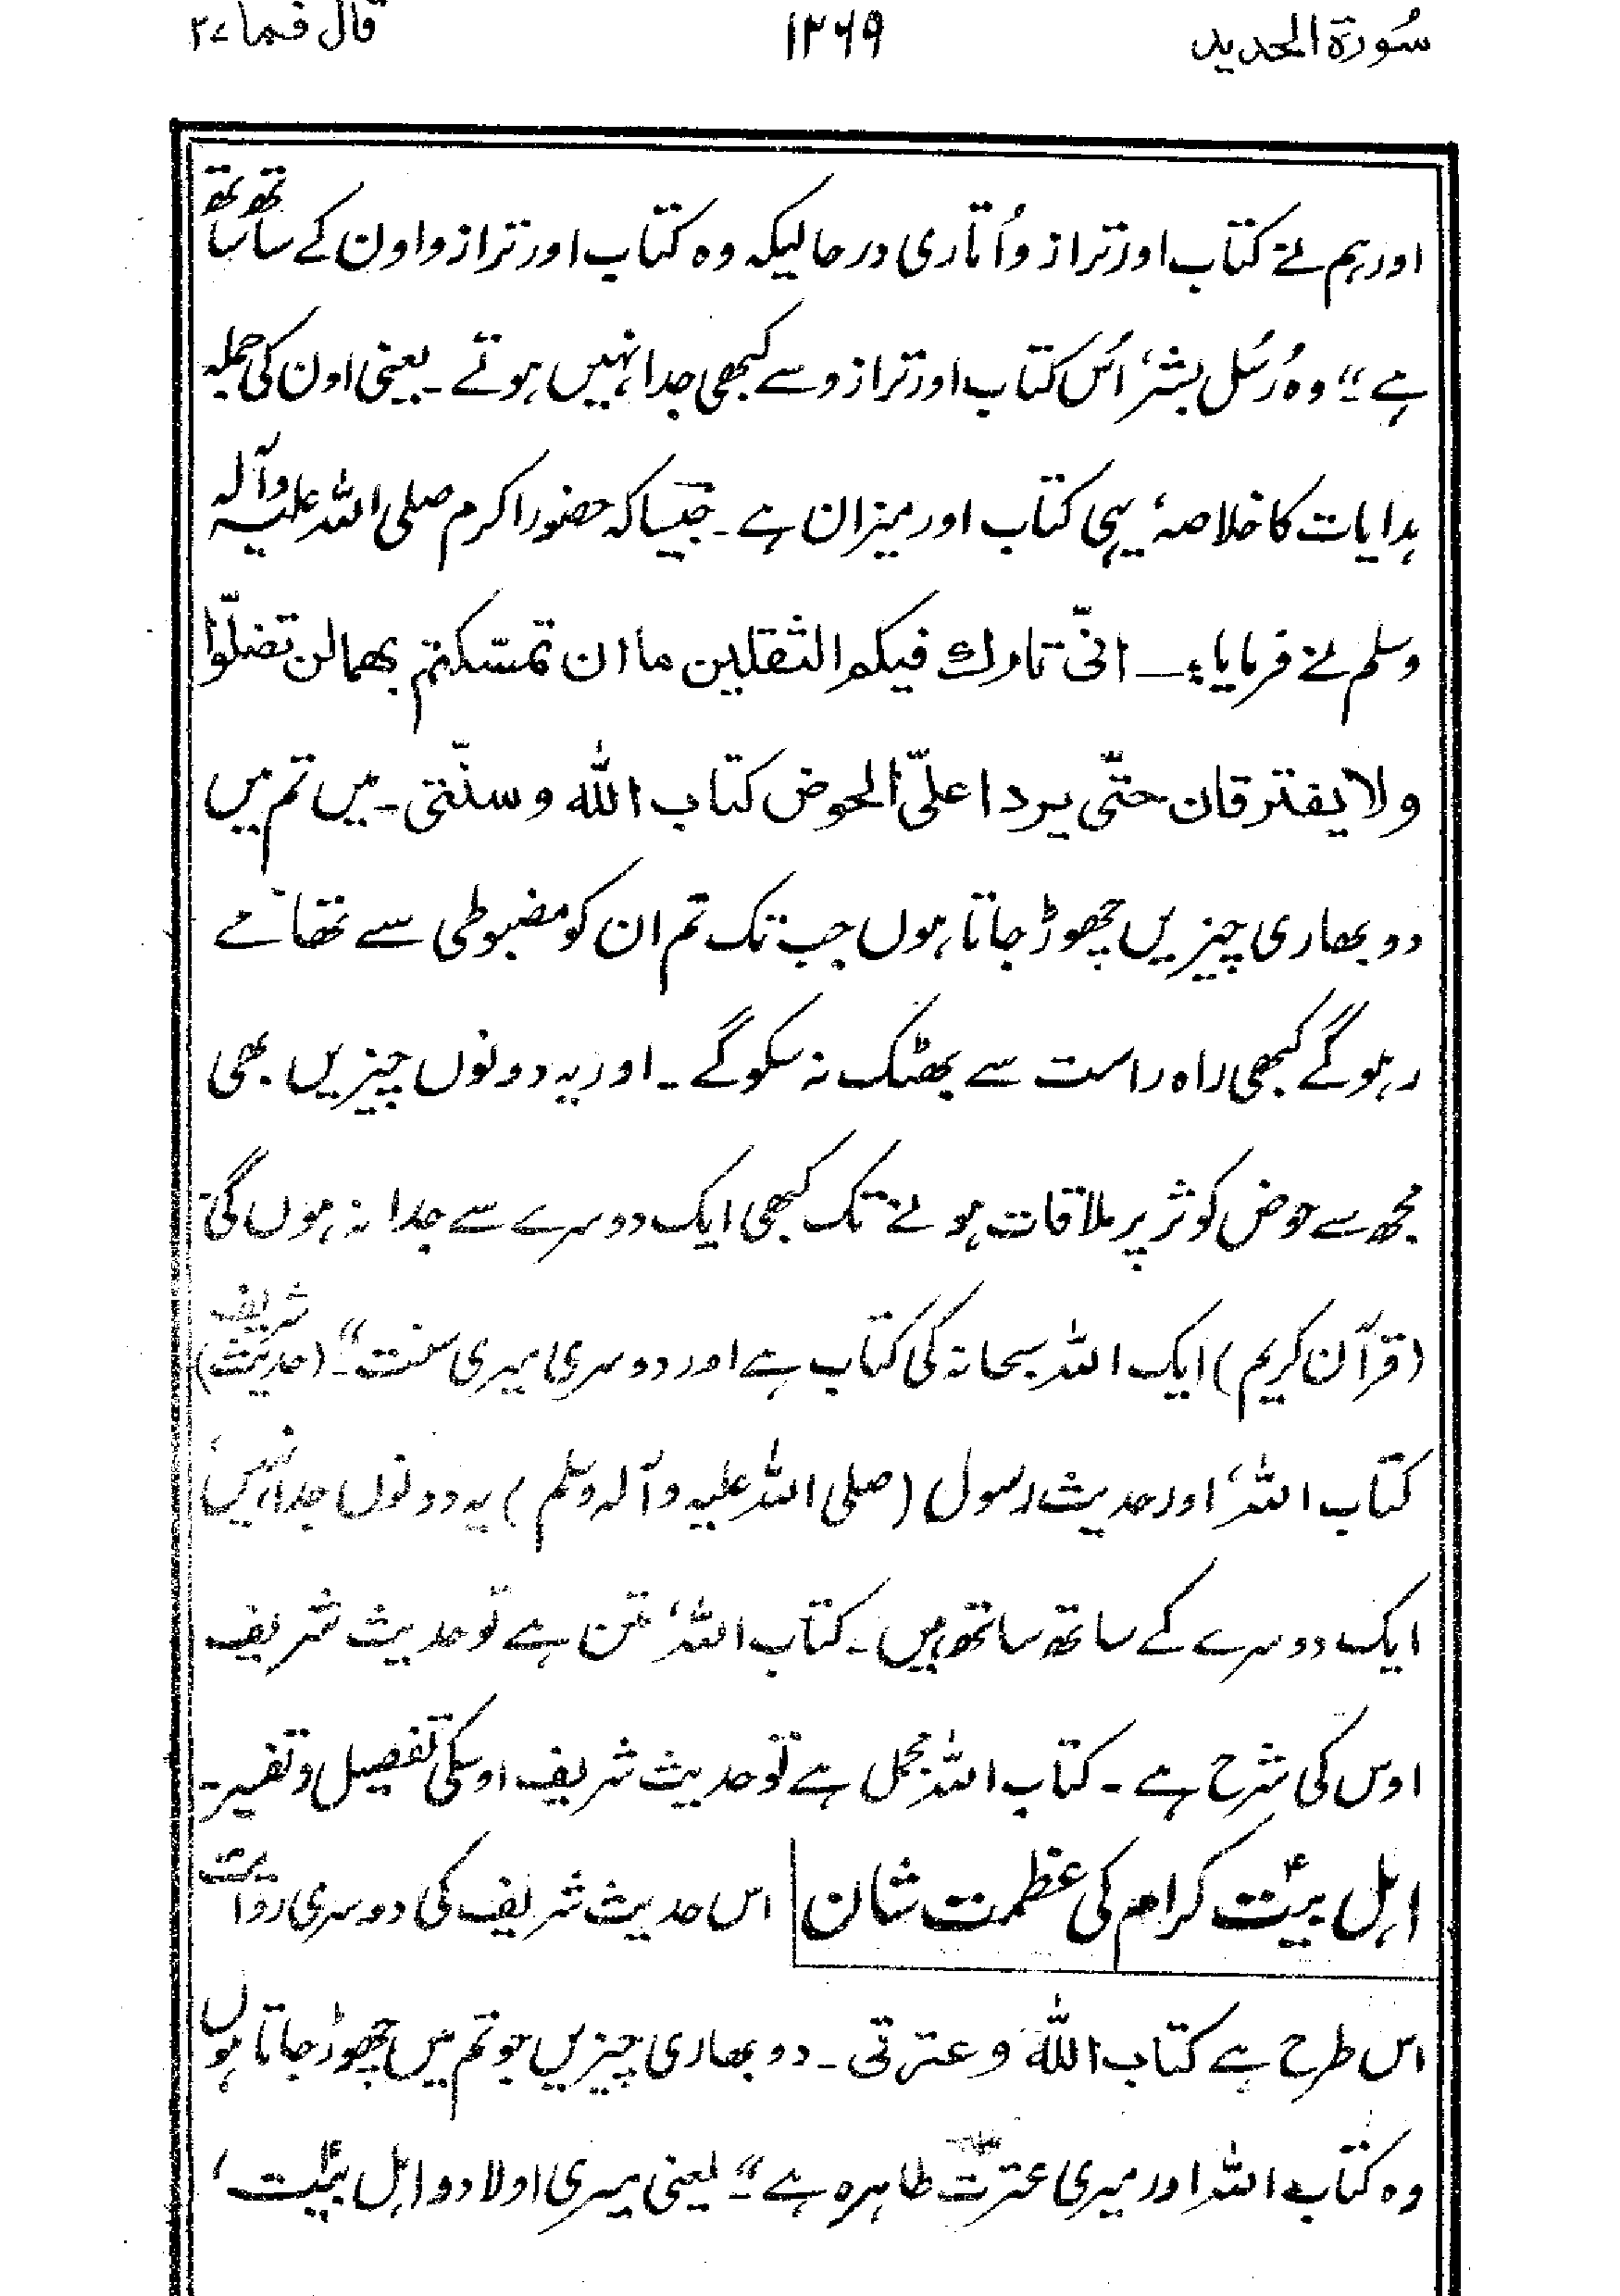 سُورة الحديد ١٣٦٩ قال فما ٢٧
اور ہم نے کتاب اور ترازو اُتاری درحالیکہ وہ کتاب اور ترازو اون کے ساتھ ساتھ
ہے“ وہ رُسُل بشر، اُس کتاب اور ترازو سے کبھی جدا نہیں ہوتے ۔ یعنی اون کی جملہ
ہدایات کا خلاصہ، یہی کتاب اور میزان ہے ۔ جیسا کہ حضور اکرم صلی اللہ علیہ وآلہ
وسلم نے فرمایا :۔ انّی تارك فیکم الثقلین ما ان تمسّکتم بھما لن تضلّوا
ولا یفترقان حتّی یردا علیّ الحوض کتاب اللّٰہ و سنّتی ۔ میں تم میں
دو بھاری چیزیں چھوڑ جاتا ہوں جب تک تم ان کو مضبوطی سے تھامے
رہو گے کبھی راہ راست سے بھٹک نہ سکو گے ۔ اور یہ دونوں چیزیں بھی
مجھ سے حوض کوثر پر ملاقات ہونے تک کبھی ایک دوسرے سے جدا نہ ہوں گی
(قرآن کریم) ایک اللہ سبحانہ کی کتاب ہے اور دوسری میری سنت“۔ (حدیث شریف)
کتاب اللہ، اور حدیث رسول (صلی اللہ علیہ وآلہ وسلم) یہ دونوں جدا نہیں،
ایک دوسرے کے ساتھ ساتھ ہیں ۔ کتاب اللہ، متن ہے تو حدیث شریف
اوس کی شرح ہے ۔ کتاب اللہ مجمل ہے تو حدیث شریف اوسکی تفصیل و تفسیر ۔
اہل بیتؑ کرام کی عظمت شان اس حدیث شریف کی دوسری روایت
اس طرح ہے کتاب اللّٰہ و عترتی ۔ دو بھاری چیزیں جو تم میں چھوڑ جاتا ہوں
وہ کتاب اللہ اور میری عترت طاہرہ ہے“۔ یعنی میری اولاد و اہل بیتؑ،